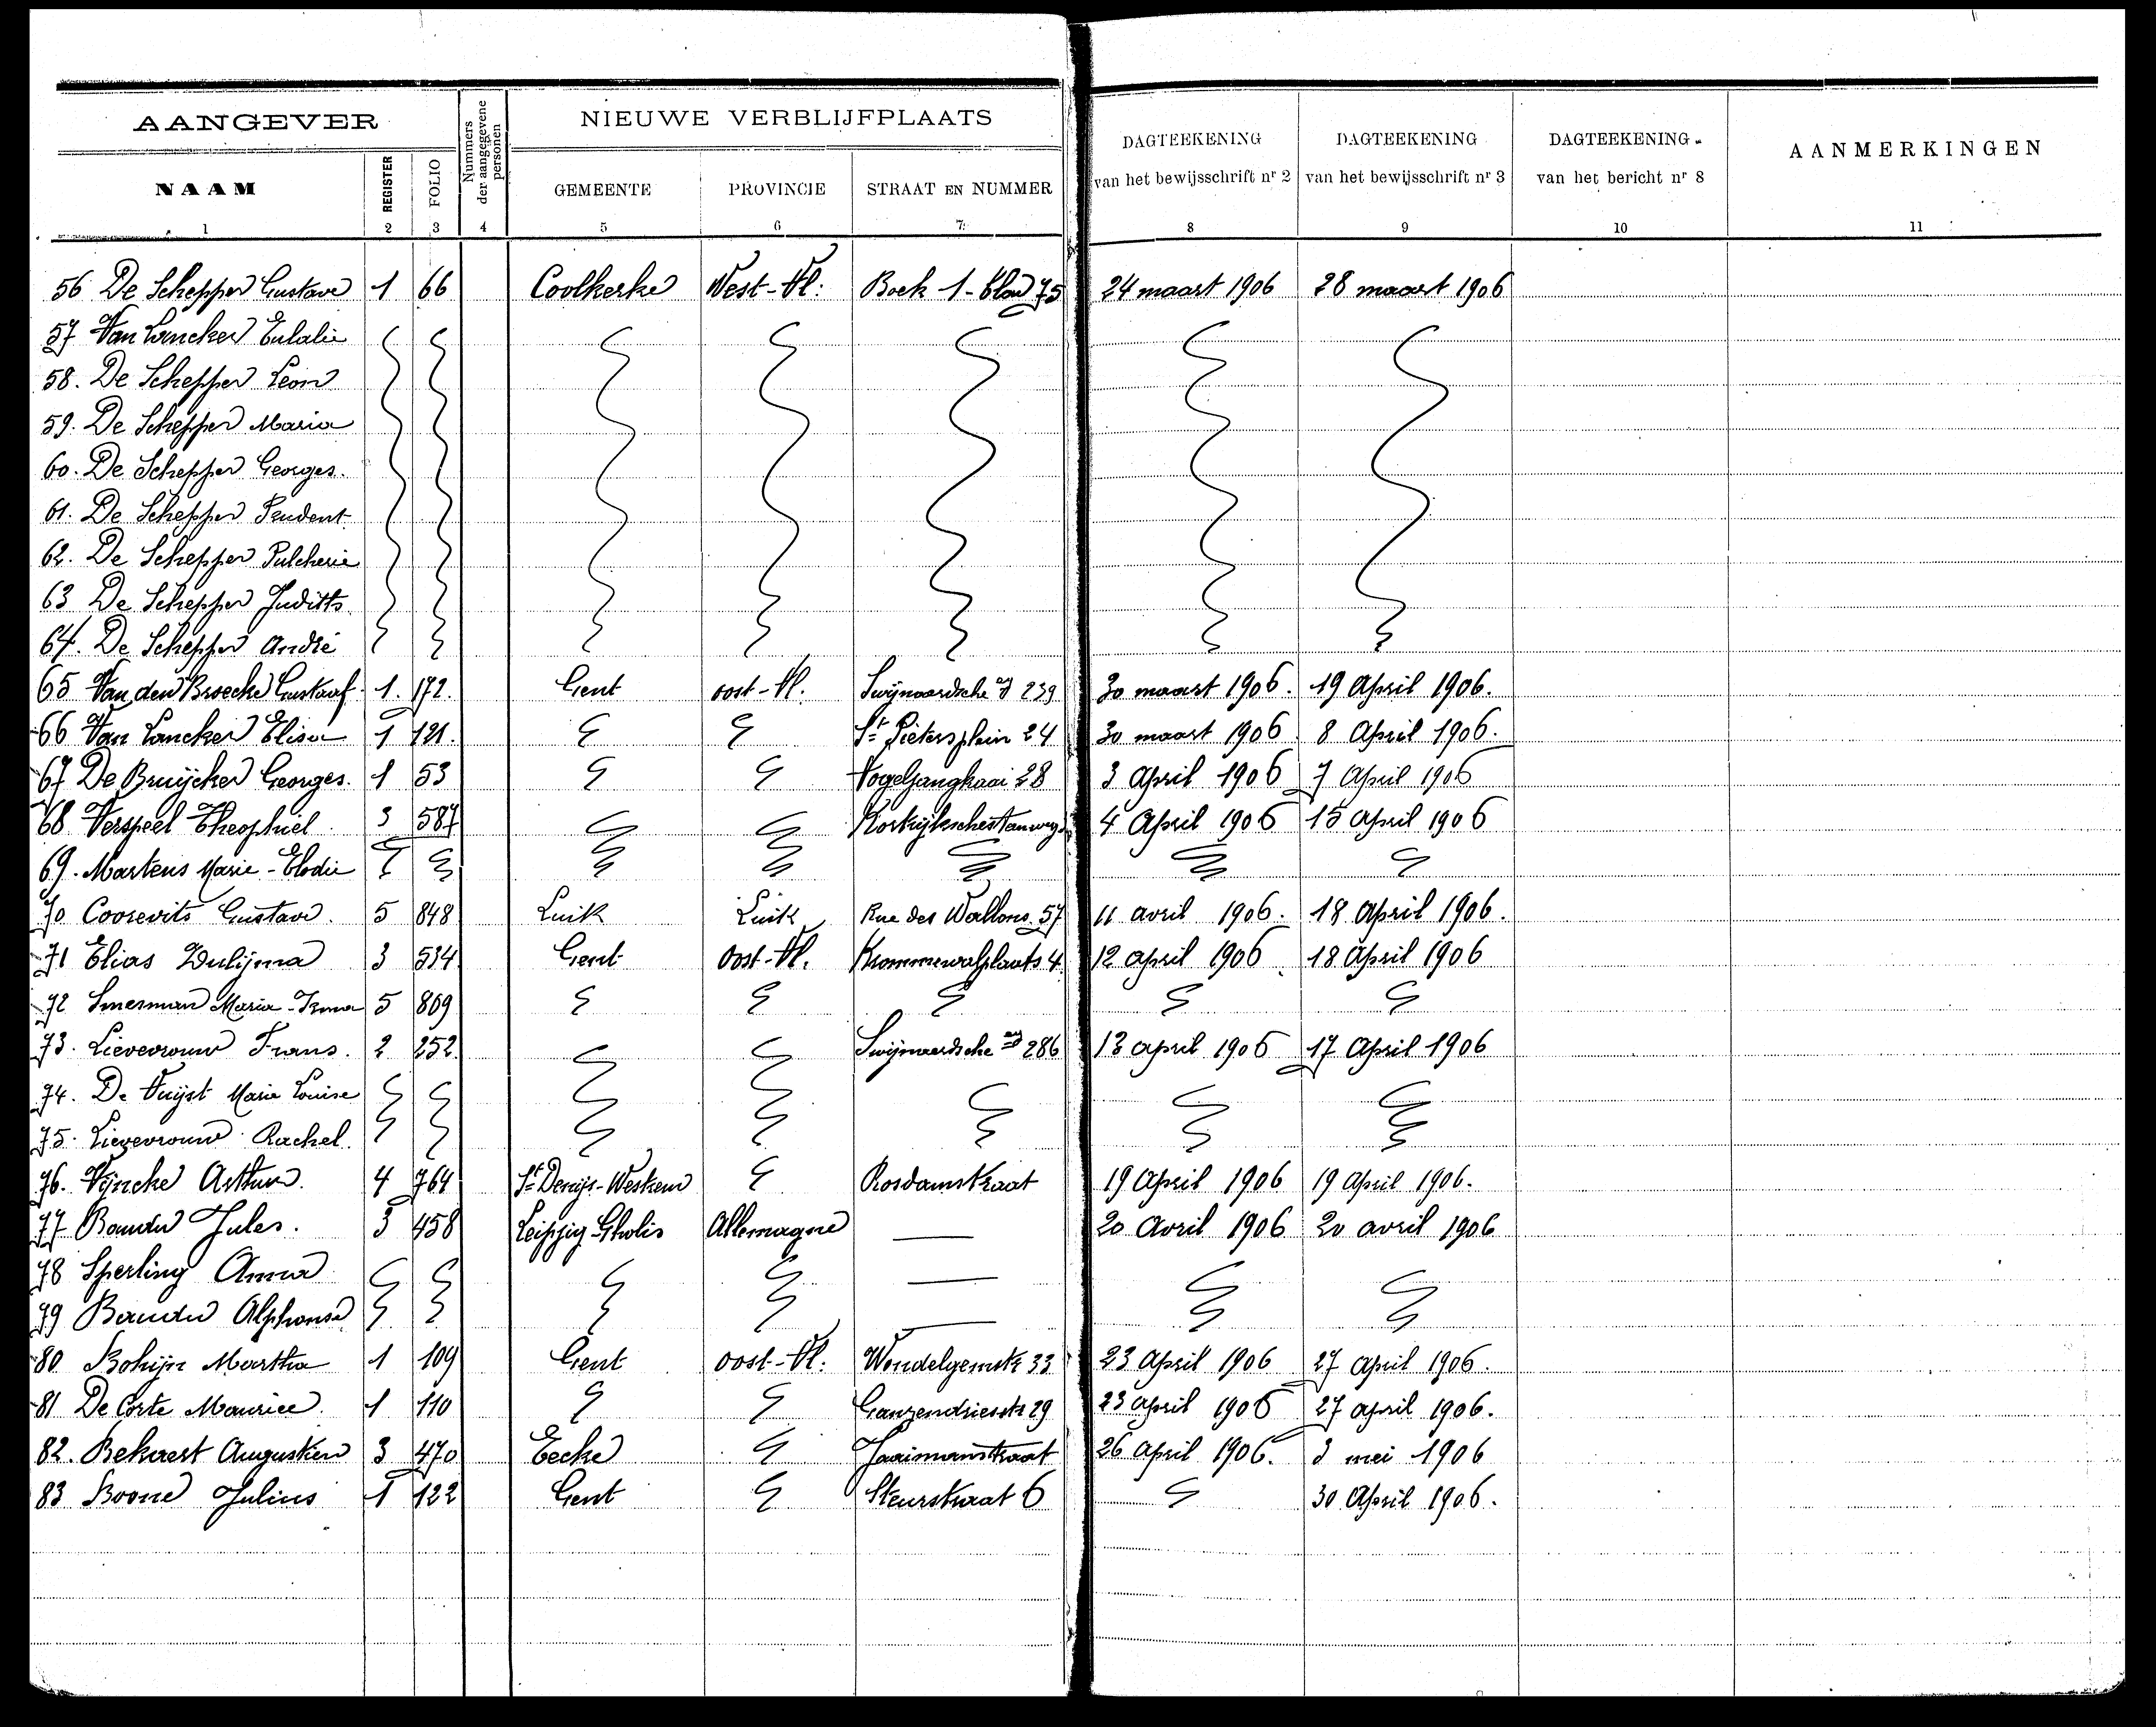 AANGEVER
Nummers der aangegevene personen
NIEUWE VERBLIJFPLAATS
DAGTEEKENING van het bewijsschrift nr 2
DAGTEEKENING van het bewijsschrift nr 3
DAGTEEKENING van het bericht nr 8
AANMERKINGEN
NAAM REGISTER FOLIO GEMEENTE PROVINCIE STRAAT EN NUMMER
1 2 3 4 5 6 7 8 9 10 11
56 De Schepper Gustave 1 66 Coolkerke West-Vl: Boek 1-blad 75 24 maart 1906 28 maart 1906
57 Van Lancker Eulalie
58. De Schepper Leon
59. De Schepper Maria
60. De Schepper Georges.
61. De Schepper Prudent
62. De Schepper Pulcherie
63 De Schepper Judith
64. De Schepper André
65 Van den Broecke Gustaaf 1. 172. Gent oost-Vl. Swijnaardsche 239 30 maart 1906. 19 April 1906.
66 Van Lancker Elisa 1 121. St Pietersplein 24 30 maart 1906 8 April 1906.
67 De Bruijcker Georges. 1 53 Vogelzangkaai 28 3 April 1906 7 April 1906
68 Verspeel Theophiel 3 587 4 April 1906 15 April 1906
69. Martens Marie-Elodie
70 Coorevits Gustave. 5 848 Luik Luik Rue des Wallons 57 11 avril 1906. 18 April 1906.
71 Elias Dulijma 3 534 Gent Oost-Vl. Krommewalplaats 4. 12 april 1906 18 April 1906
72 Smerman Maria-Irma 5 869
73. Lievevrouw Frans. 2 252 Swijnaardsche 286 13 april 1906 17 April 1906
74. De Vuijst Marie Louise
75. Lievevrouw Rachel.
76. Vijncke Arthur. 4 764 St Denijs-Westrem Rosdamstraat 19 April 1906 19 April 1906.
77 Baudu Jules. 3 458 Leipzig-Gholis Allemagne — 20 Avril 1906 20 avril 1906
78 Sperling Anna —
79 Baudu Alphonse —
80 Bohijn Martha 1 109 Gent oost-Vl: Wondelgemstr 33 23 April 1906 27 April 1906.
81 De Corte Maurice. 1 110 Ganzendriesstr 29 23 april 1906 27 april 1906.
82. Bekaert Augustien 3 470 Eecke 26 April 1906. 3 mei 1906
83 Boone Julius 1 122 Gent Steurstraat 6 30 April 1906.